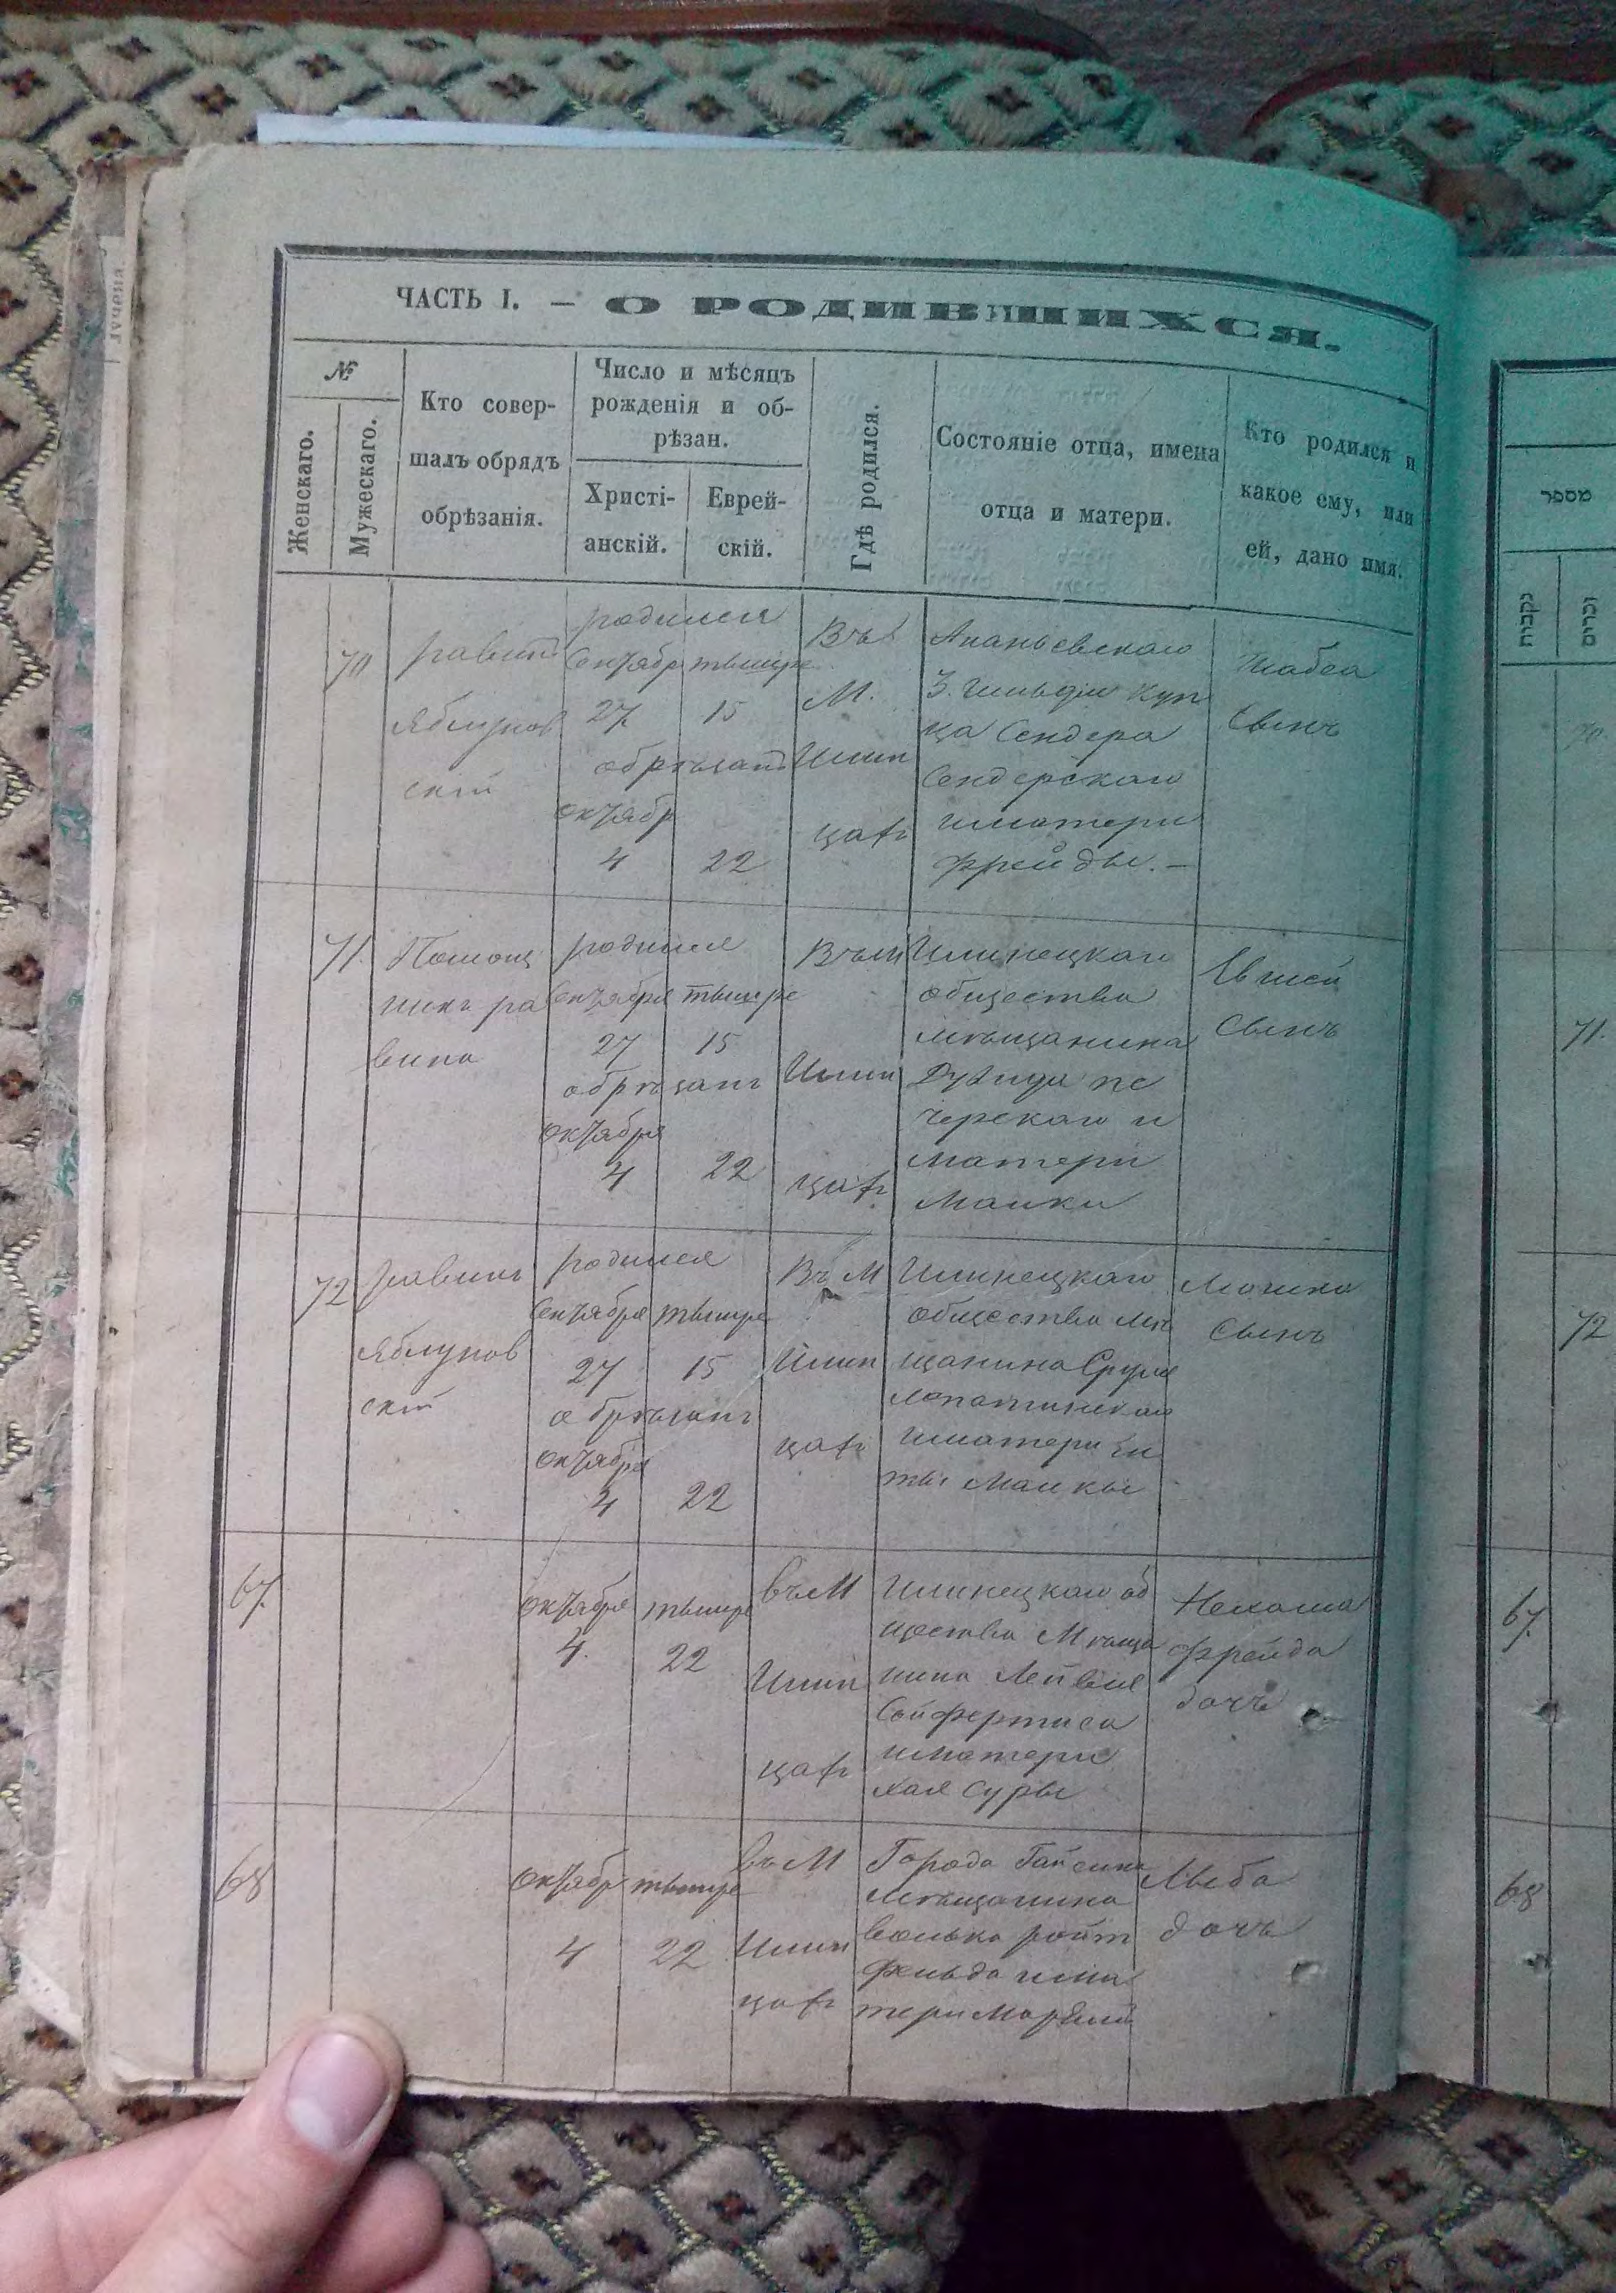 ЧАСТЬ I. — О РОДИВШИХСЯ.
№
Женскаго.
Мужескаго.
Кто совер-
шалъ обрядъ
обрѣзанія.
Число и мѣсяцъ
рожденія и об-
рѣзан.
Христі-
анскій.
Еврей-
скій.
Гдѣ родился.
Состояніе отца, имена
отца и матери.
Кто родился и
какое ему, или
ей, дано имя.
70
равин
Яблунов
скій
родился
Сентябр тышре
27 15
обрѣзанъ
октябр
4 22
Въ
М.
Илин
цахъ
Ананьевскаго
3. гильдіи куп
ца Сендера
Сендерскаго
иматери
Фрейды. —
Сынъ
71.
Помощ
никъ ра
вина
родился
Сентября тышре
27 15
обрѣзанъ
октября
4 22
Въ М
Илин
цахъ
Илинецкаго
общества
мѣщанина
Дувида пе
черскаго и
матери
Малки
Евсей
Сынъ
72
равинъ
Яблунов
скій
родился
Сентября тышре
27 15
обрѣзанъ
октября
4 22
Въ М
Илин
цахъ
Илинецкаго
общества мѣ
щанина Сруля
иматери
ты Малкы
Мошко
Сынъ
67.
октября тышре
4. 22
въ М
Илин
цахъ
Илинецкаго об
щества Мѣща
нина Лейвы
иматери
хая Суры
Нехама
Фрейда
дочь
68
октябр тышре
4 22
въ М
Илин
цахъ
Города Гайсина
мѣщанина
волька ройт
фельда има
тери
Лыба
дочь
מספר
נקבות
זכרים
70.
71.
72
67.
68